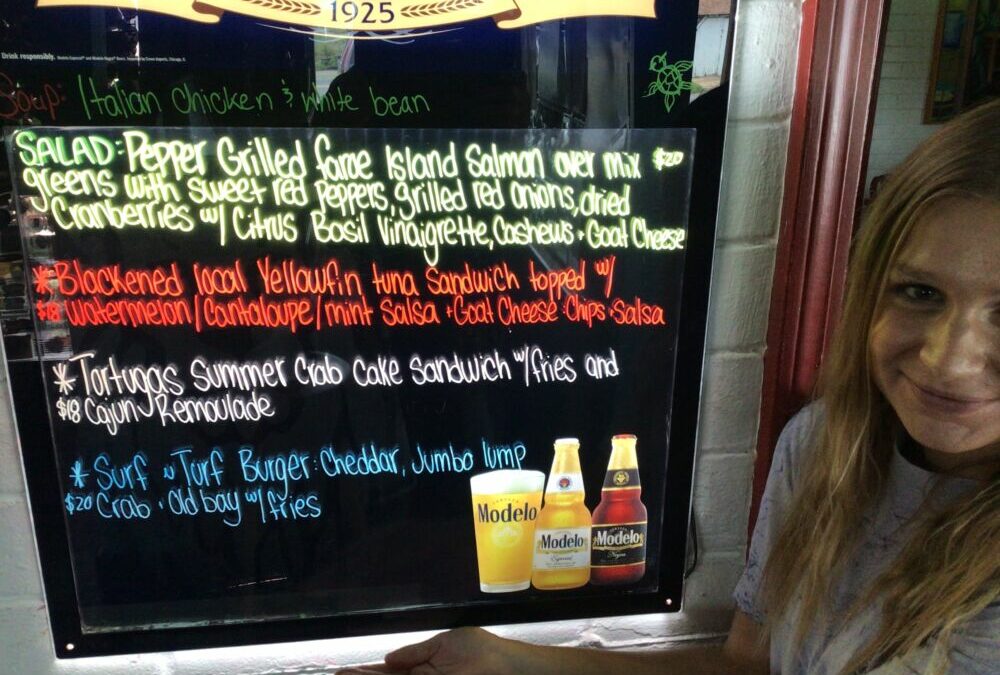 1925
Drink responsibly.
Soup: Italian Chicken & White bean
SALAD: Pepper Grilled faroe Island Salmon over mix $20
greens with sweet red Peppers, grilled red onions, dried
Cranberries w/ Citrus Basil Vinaigrette, Cashews + Goat Cheese
* Blackened local Yellowfin tuna Sandwich topped w/
$18 watermelon/Cantaloupe/mint Salsa + Goat Cheese : Chips + Salsa
* Tortugas Summer Crab Cake Sandwich w/fries and
$18 Cajun Remoulade
* Surf ~ Turf Burger: Cheddar, Jumbo lump
$20 Crab + Old bay w/fries
Modelo
Modelo
Especial
Modelo
Negra